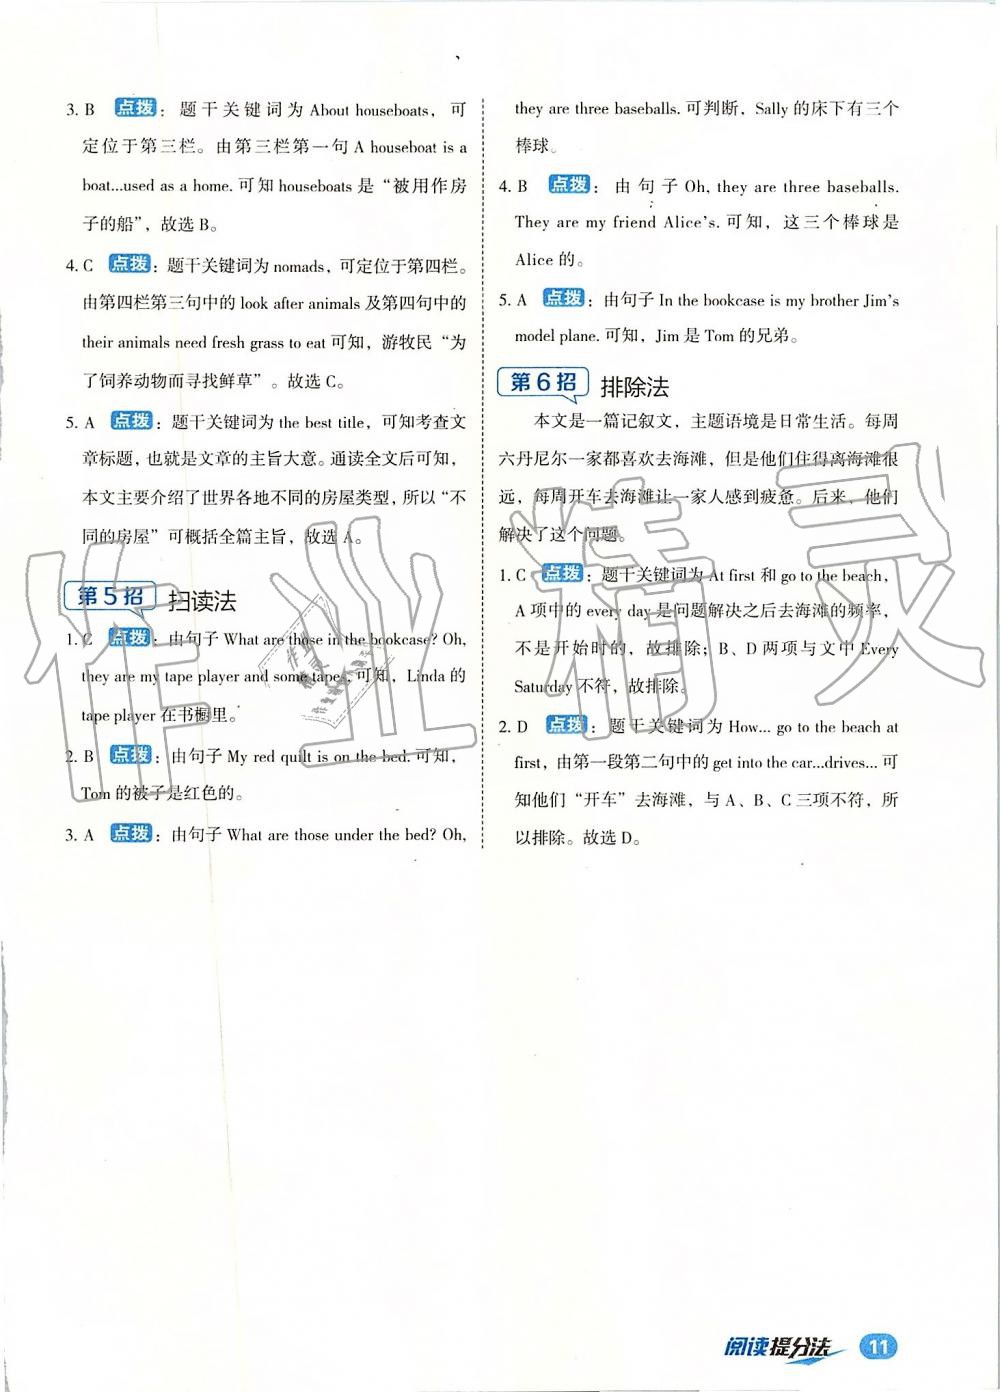 3. B 点拨：题干关键词为 About houseboats，可
定位于第三栏。由第三栏第一句 A houseboat is a
boat...used as a home. 可知 houseboats 是“被用作房
子的船”，故选 B。
4. C 点拨：题干关键词为 nomads，可定位于第四栏。
由第四栏第三句中的 look after animals 及第四句中的
their animals need fresh grass to eat 可知，游牧民“为
了饲养动物而寻找鲜草”。故选 C。
5. A 点拨：题干关键词为 the best title，可知考查文
章标题，也就是文章的主旨大意。通读全文后可知，
本文主要介绍了世界各地不同的房屋类型，所以“不
同的房屋”可概括全篇主旨，故选 A。
第5招 扫读法
1. C 点拨：由句子 What are those in the bookcase? Oh,
they are my tape player and some tapes. 可知，Linda 的
tape player 在书橱里。
2. B 点拨：由句子 My red quilt is on the bed. 可知，
Tom 的被子是红色的。
3. A 点拨：由句子 What are those under the bed? Oh,
they are three baseballs. 可判断，Sally 的床下有三个
棒球。
4. B 点拨：由句子 Oh, they are three baseballs.
They are my friend Alice's. 可知，这三个棒球是
Alice 的。
5. A 点拨：由句子 In the bookcase is my brother Jim's
model plane. 可知，Jim 是 Tom 的兄弟。
第6招 排除法
本文是一篇记叙文，主题语境是日常生活。每周
六丹尼尔一家都喜欢去海滩，但是他们住得离海滩很
远，每周开车去海滩让一家人感到疲惫。后来，他们
解决了这个问题。
1. C 点拨：题干关键词为 At first 和 go to the beach，
A 项中的 every day 是问题解决之后去海滩的频率，
不是开始时的，故排除；B、D 两项与文中 Every
Saturday 不符，故排除。
2. D 点拨：题干关键词为 How... go to the beach at
first，由第一段第二句中的 get into the car...drives... 可
知他们“开车”去海滩，与 A、B、C 三项不符，所
以排除。故选 D。
作业精灵
阅读提分法 11